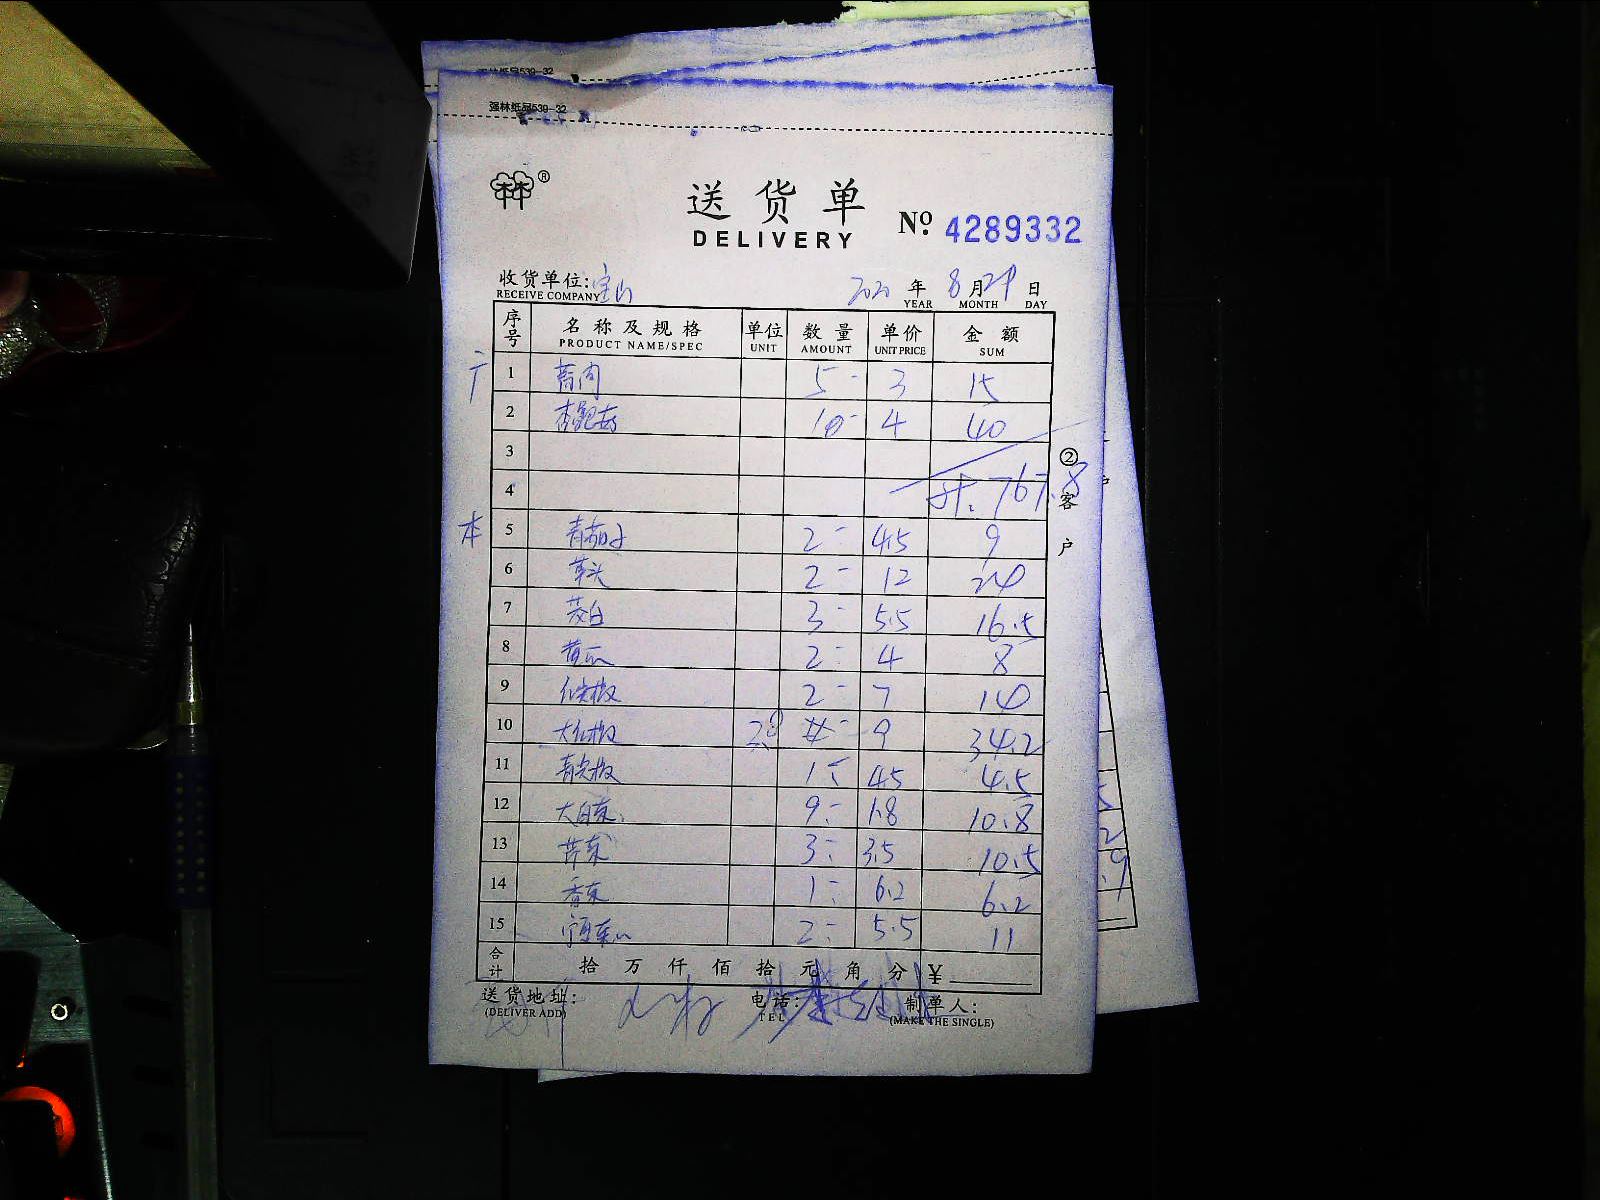 强林纸品539-32
送货单
DELIVERY
№ 4289332
收货单位:宝山 2020 年 8 月 29 日
RECEIVE COMPANY YEAR MONTH DAY
序号 名称及规格 单位 数量 单价 金额
PRODUCT NAME/SPEC UNIT AMOUNT UNIT PRICE SUM
1 5 - 3 15
2 杏鲍菇 10 - 4 40
3
4 767.8
本 5 青茄子 2 - 4.5 9
6 草头 2 - 12 24
7 茭白 3 - 5.5 16.5
8 黄瓜 2 - 4 8
9 2 - 7 14
10 大红椒 3.8 9 34.2
11 青尖椒 1 - 4.5 4.5
12 大白菜 9 - 1.8 10.8
13 芹菜 3 - 3.5 10.5
14 香菜 1 - 6.2 6.2
15 2 - 5.5 11
合计 拾 万 仟 佰 拾 元 角 分 ¥
送货地址: 电话: 制单人:
(DELIVER ADD) TEL (MAKE THE SINGLE)
②客户